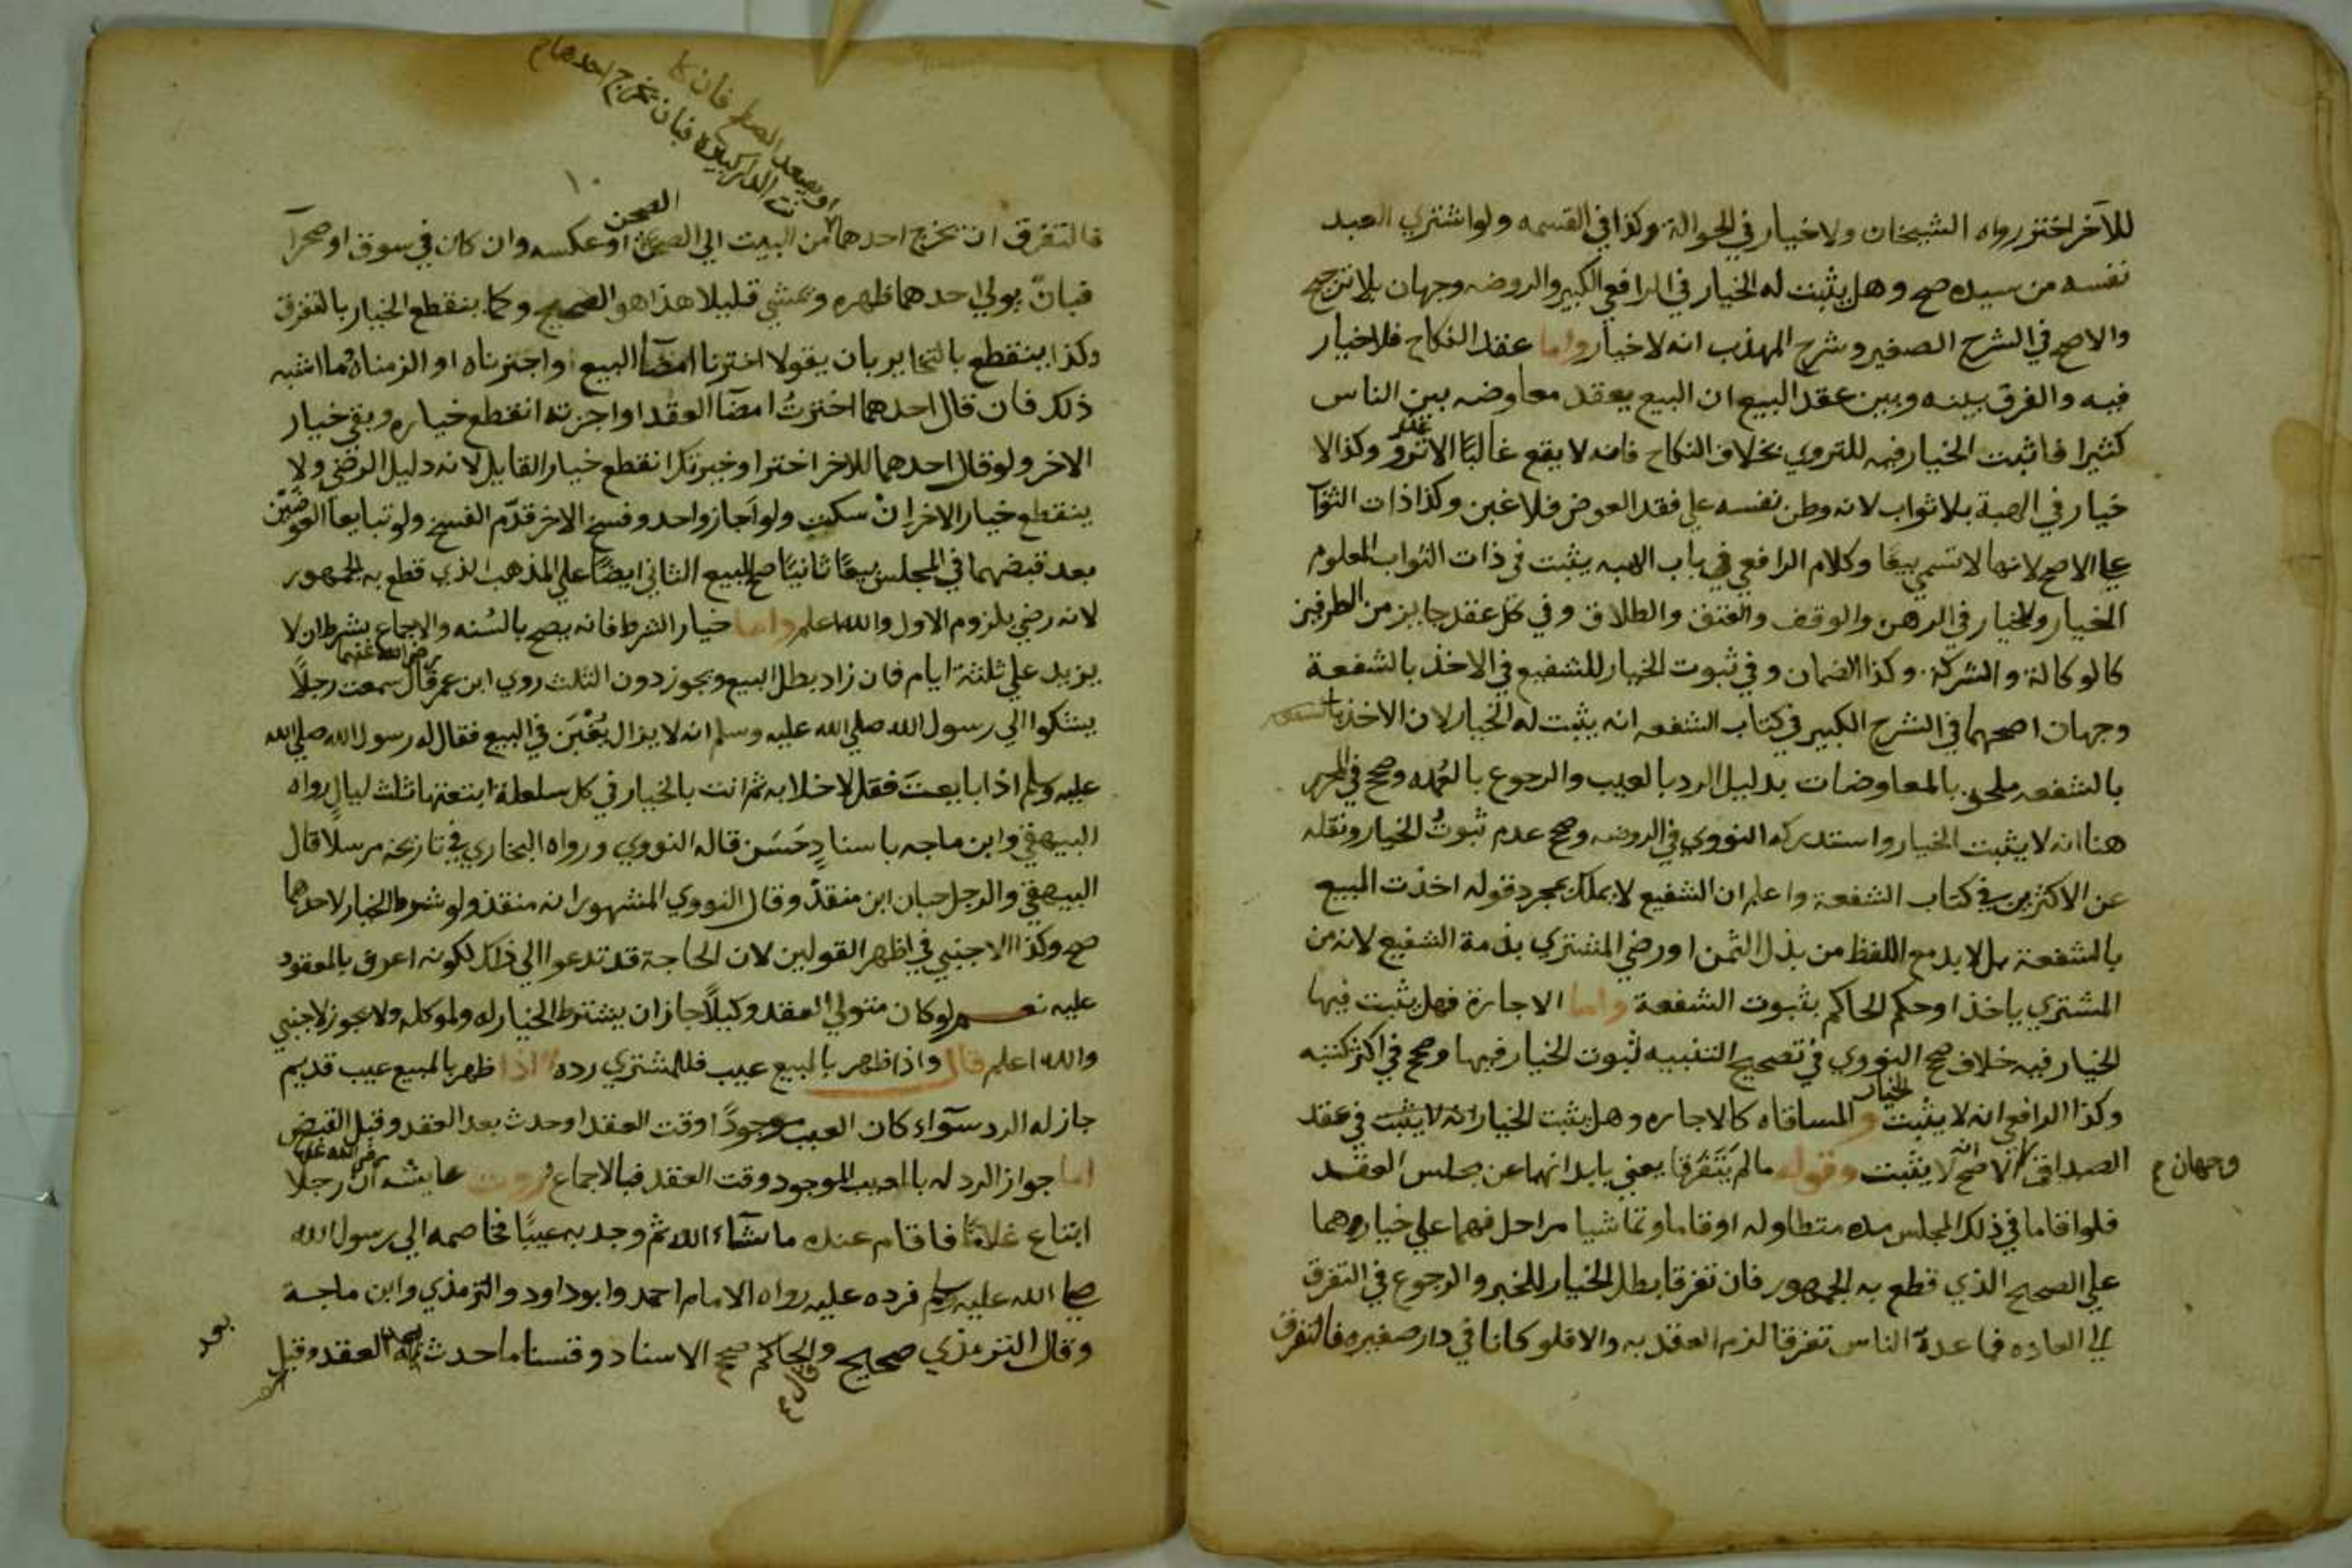 للآخر اختر رواه الشيخان ولا خيار في الحوالة وكذا في القسمه ولو اشتري العبد
نفسه من سيده صح وهل يثبت له الخيار في الرافعي الكبير والروضه وجهان بلا ترجيح
والاصح في الشرح الصغير وشرح المهذب انه لا خيار واما عقد النكاح فلا خيار
فيه والفرق بينه وبين عقد البيع ان البيع يعقد معاوضه بين الناس
كثيرا فاثبت الخيار فيه للتروي بخلاف النكاح فانه لا يقع غالبًا الا عن تروٍّ وكذا لا
خيار في الهبة بلا ثواب لانه وطن نفسه علي فقد العوض فلا غبن وكذا ذات الثواب
علي الاصح لانها لا تسمي بيعًا وكلام الرافعي في باب الهبه يثبت في ذات الثواب المعلوم
الخيار ولا خيار في الرهن والوقف والعتق والطلاق وفي كل عقد جايز من الطرفين
كالوكالة والشركة وكذا الضمان وفي ثبوت الخيار للشفيع في الاخذ بالشفعة
وجهان اصحهما في الشرح الكبير في كتاب الشفعه انه يثبت له الخيار لان الاخذ
بالشفعه ملحق بالمعاوضات بدليل الرد بالعيب والرجوع بالعُهده وصحح في المحرر
هنا انه لا يثبت الخيار واستدركه النووي في الروضه وصحح عدم ثبوتُ الخيار ونقله
عن الاكثرين في كتاب الشفعة واعلم ان الشفيع لا يملك بمجرد قوله اخذت المبيع
بالشفعة بل لا بد مع اللفظ من بذل الثمن او رضي المشتري بذمة الشفيع لانه من
المشتري ياخذ او حكم الحاكم بثبوت الشفعة واما الاجارة فهل يثبت فيها
الخيار فيه خلاف صحح النووي في تصحيح التنبيه ثبوت الخيار فيها وصحح في اكثر كتبه
وكذا الرافعي انه لا يثبت الخيار والمساقاه كالاجاره وهل يثبت الخيار انه لا يثبت في عقد
الصداق وجهان الاصح انه لا يثبت وقوله ما لم يَتَفَرقا يعني بابدانهما عن مجلس العقد
فلو اقاما في ذلك المجلس مده متطاوله او قاما وتماشيا مراحل فهما علي خيارهما
علي الصحيح الذي قطع به الجمهور فان تفرقا بطل الخيار للخبر والرجوع في التفرق
الي العاده فما عدهُ الناس تفرقا لزم العقد به والا فلو كانا في دار صغيره فالتفرق
وجهان ع
او يصعد السطح فان كا
نت الدار كبيرة فبان يخرج احدهما
١٠
فالتفرق ان يخرج احدهما من البيت الي الصحن او عكسه وان كان في سوق او صحرآ
فبانّ يولي احدهما ظهره ويمشي قليلا هذا هو الصحيح وكما ينقطع الخيار بالتفرق
وكذا ينقطع بالتخاير بان يقولا اخترنا امضآ البيع او اجزناه او الزمناه وما اشبه
ذلك فان قال احدهما اخترتُ امضآ العقد او اجزته انقطع خياره وبقي خيار
الاخر ولو قال احدهما للاخر اختر او خيرتك انقطع خيار القايل لانه دليل الرضي ولا
ينقطع خيار الاخر اِنْ سكت ولو اَجاز واحد وفسخ الاخر قدّم الفسخ ولو تبايعا العوضَين
بعد قبضهما في المجلس بيعًا ثانيًا صح البيع الثاني ايضًا علي المذهب الذي قطع به الجمهور
لانه رضي بلزوم الاول والله اعلم واما خيار الشرط فانه يصح بالسُنه والاجماع بشرط ان لا
يزيد علي ثلثة ايام فان زاد بطل البيع ويجوز دون الثلث روي ابن عمر رضي الله عنهما قال سمعت رجلًا
يشكوا الي رسول الله صلي الله عليه وسلم انه لا يزال يُغْبَن في البيع فقال له رسول الله صلي الله
عليه وسلم اذا بايعتَ فقل لا خلابه ثم انت بالخيار في كل سلعة ابتعتها ثلث ليالٍ رواه
البيهقي وابن ماجه باسنادٍ حَسَن قاله النووي ورواه البخاري في تاريخه مرسلا قال
البيهقي والرجل حبان ابن منقذ وقال النووي المشهور انه منقذ ولو شرط الخيار لاحدهما
صح وكذا الاجنبي في اظهر القولين لان الحاجة قد تدعوا الي ذلك لكونه اعرف بالمعقود
عليه نعم لو كان متولي العقد وكيلًا جاز ان يشترط الخيار له ولموكله ولا يجوز لاجنبي
والله اعلم قال واذا ظهر بالمبيع عيب فللمشتري رده اذا ظهر بالمبيع عيب قديم
جاز له الرد سوآء كان العيب موجودًا وقت العقد او حدث بعد العقد وقبل القبض
اما جواز الرد له بالعيب الموجود وقت العقد فبالاجماع وروت عايشه رضي الله عنها ان رجلًا
ابتاع غلامًا فاقام عنده ما شآء الله ثم وجد به عيبًا فخاصمه الي رسول الله
صلي الله عليه وسلم فرده عليه رواه الامام احمد وابو داود والترمذي وابن ماجة
وقال الترمذي صحيح وقال الحاكم صحيح الاسناد وقسنا ما حدث بعد العقد وقبل
بعد